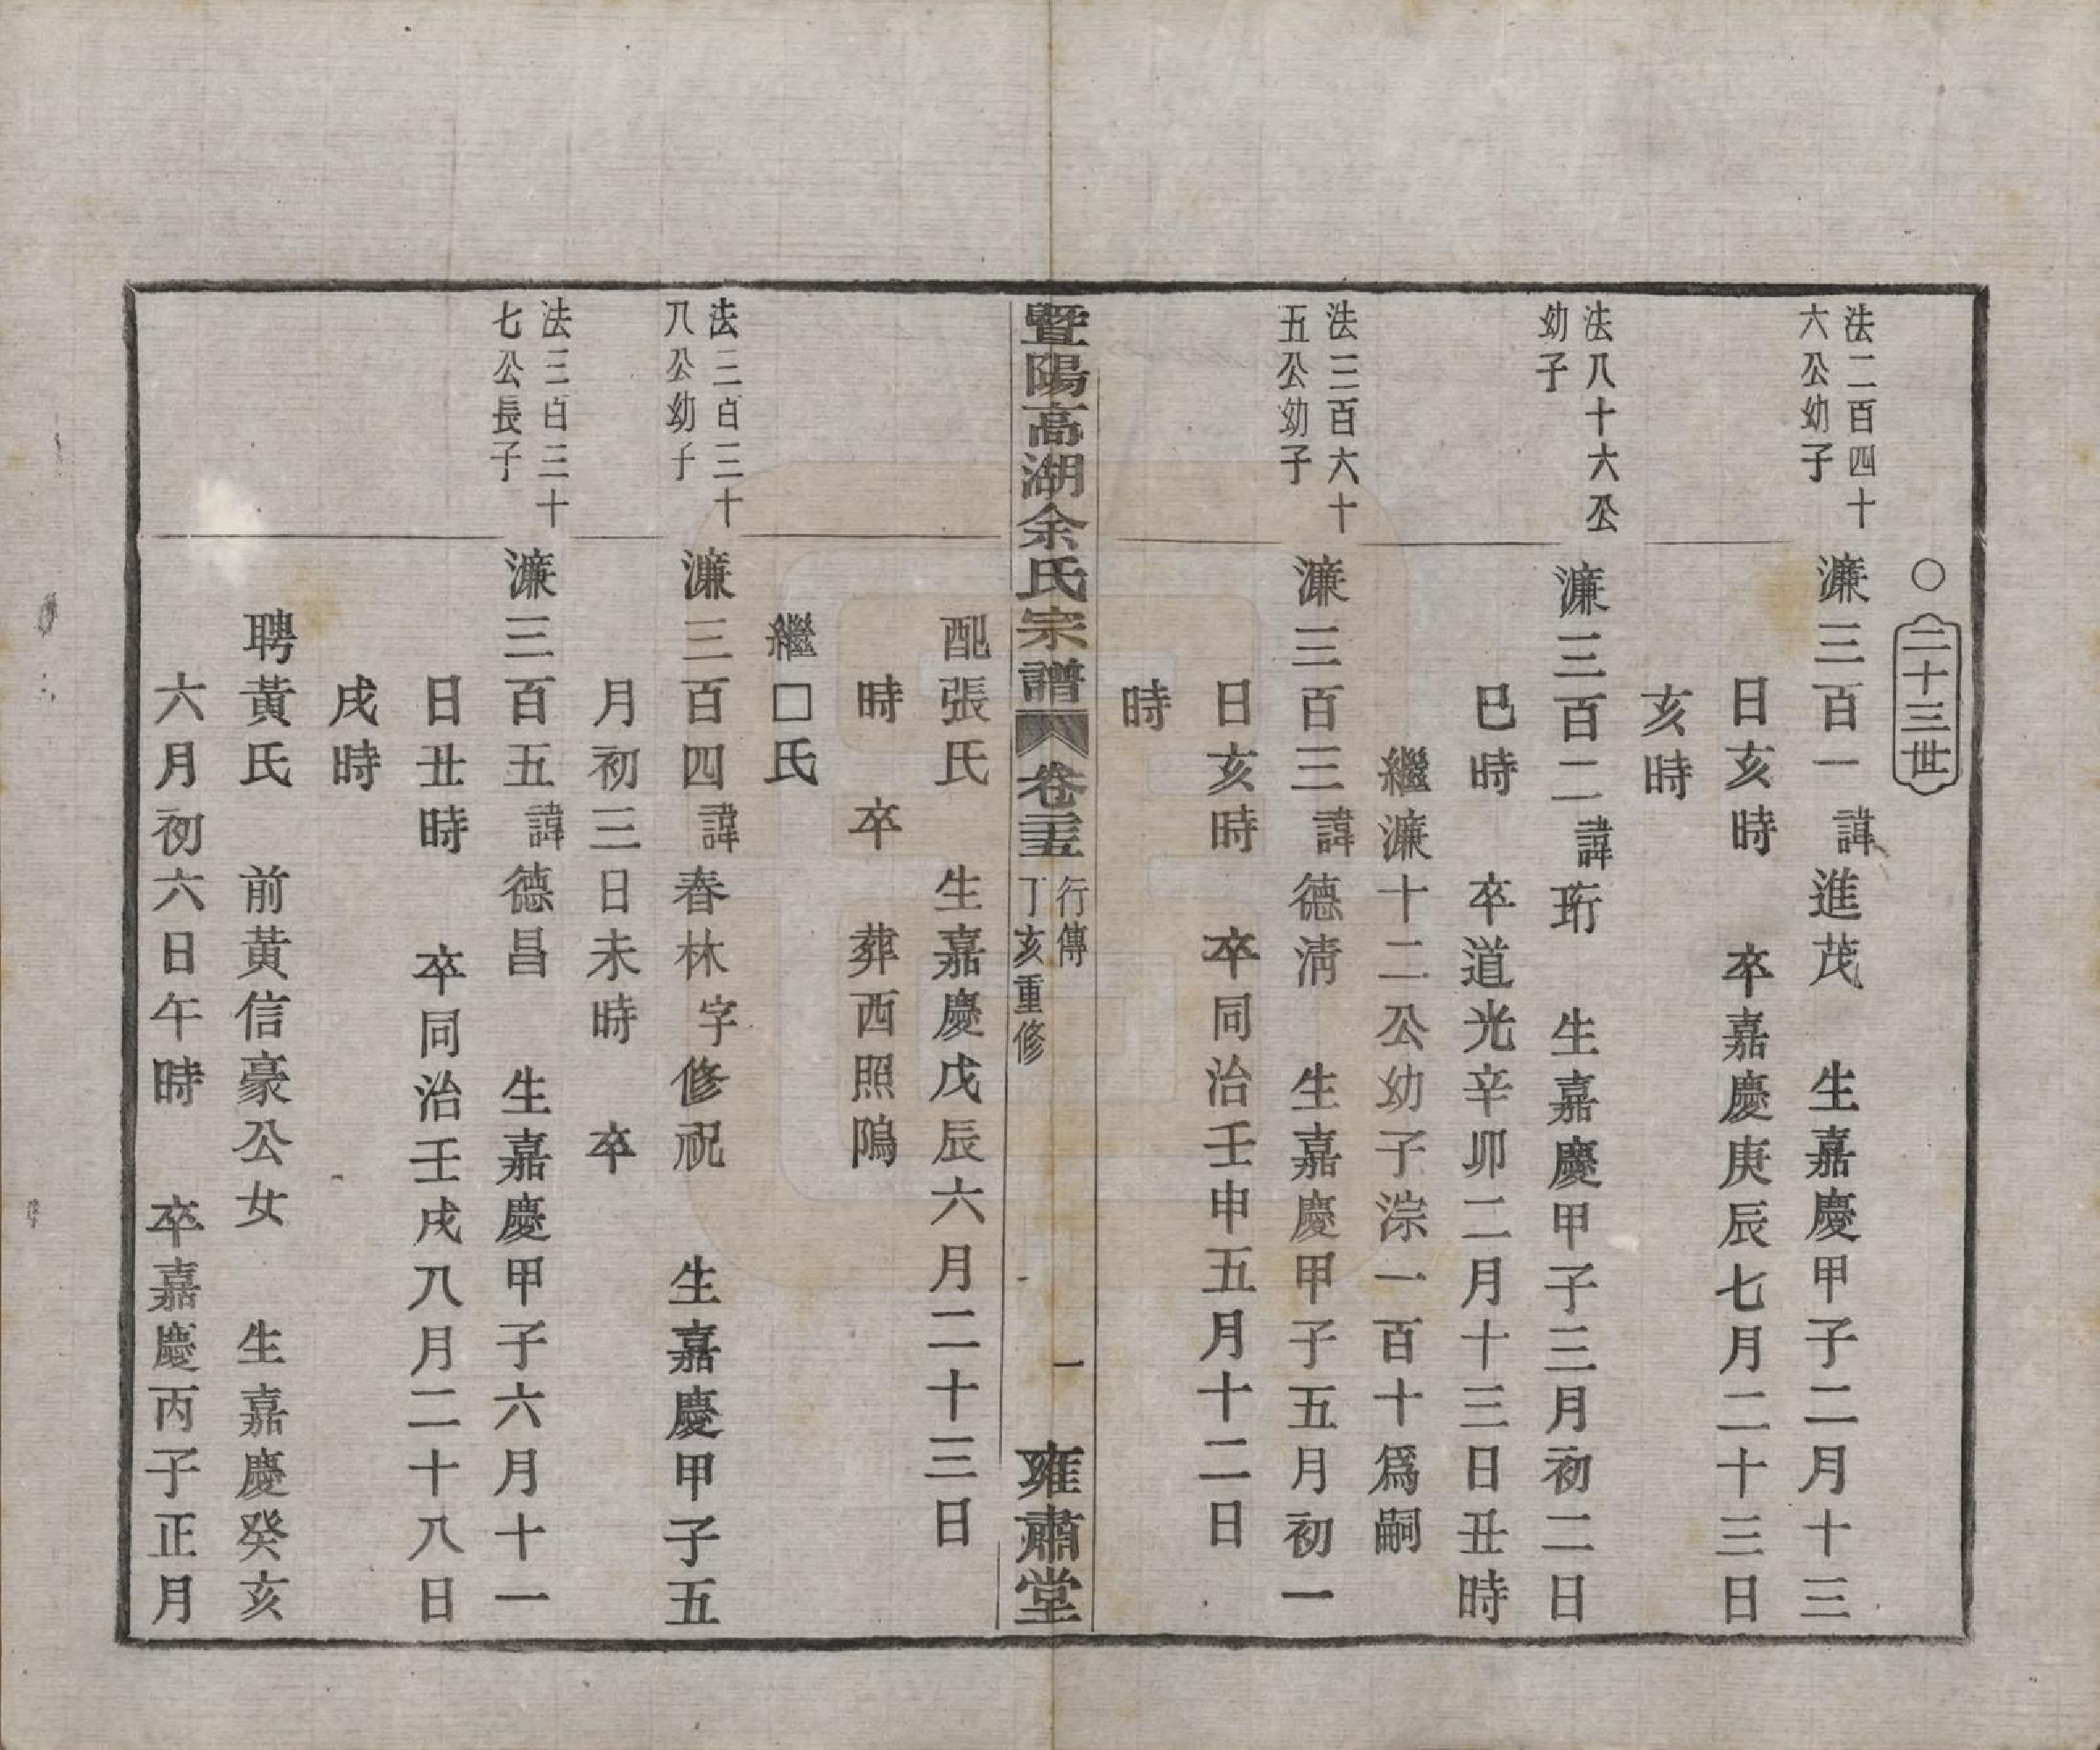 ○二十三世
法二百四十
六公幼子
濂三百一諱進茂 生嘉慶甲子二月十三
日亥時 卒嘉慶庚辰七月二十三日
亥時
法八十六公
幼子
濂三百二諱珩 生嘉慶甲子三月初二日
巳時 卒道光辛卯二月十三日丑時
繼濂十二公幼子淙一百十爲嗣
法三百六十
五公幼子
濂三百三諱德淸 生嘉慶甲子五月初一
日亥時 卒同治壬申五月十二日
時
暨陽高湖余氏宗譜 卷二十五 行傳 丁亥重修 一 雍肅堂
配張氏 生嘉慶戊辰六月二十三日
時 卒 葬西照隖
繼□氏
法三百三十
八公幼子
濂三百四諱春林字修祝 生嘉慶甲子五
月初三日未時 卒
法三百三十
七公長子
濂三百五諱德昌 生嘉慶甲子六月十一
日丑時 卒同治壬戌八月二十八日
戌時
聘黃氏 前黃信豪公女 生嘉慶癸亥
六月初六日午時 卒嘉慶丙子正月